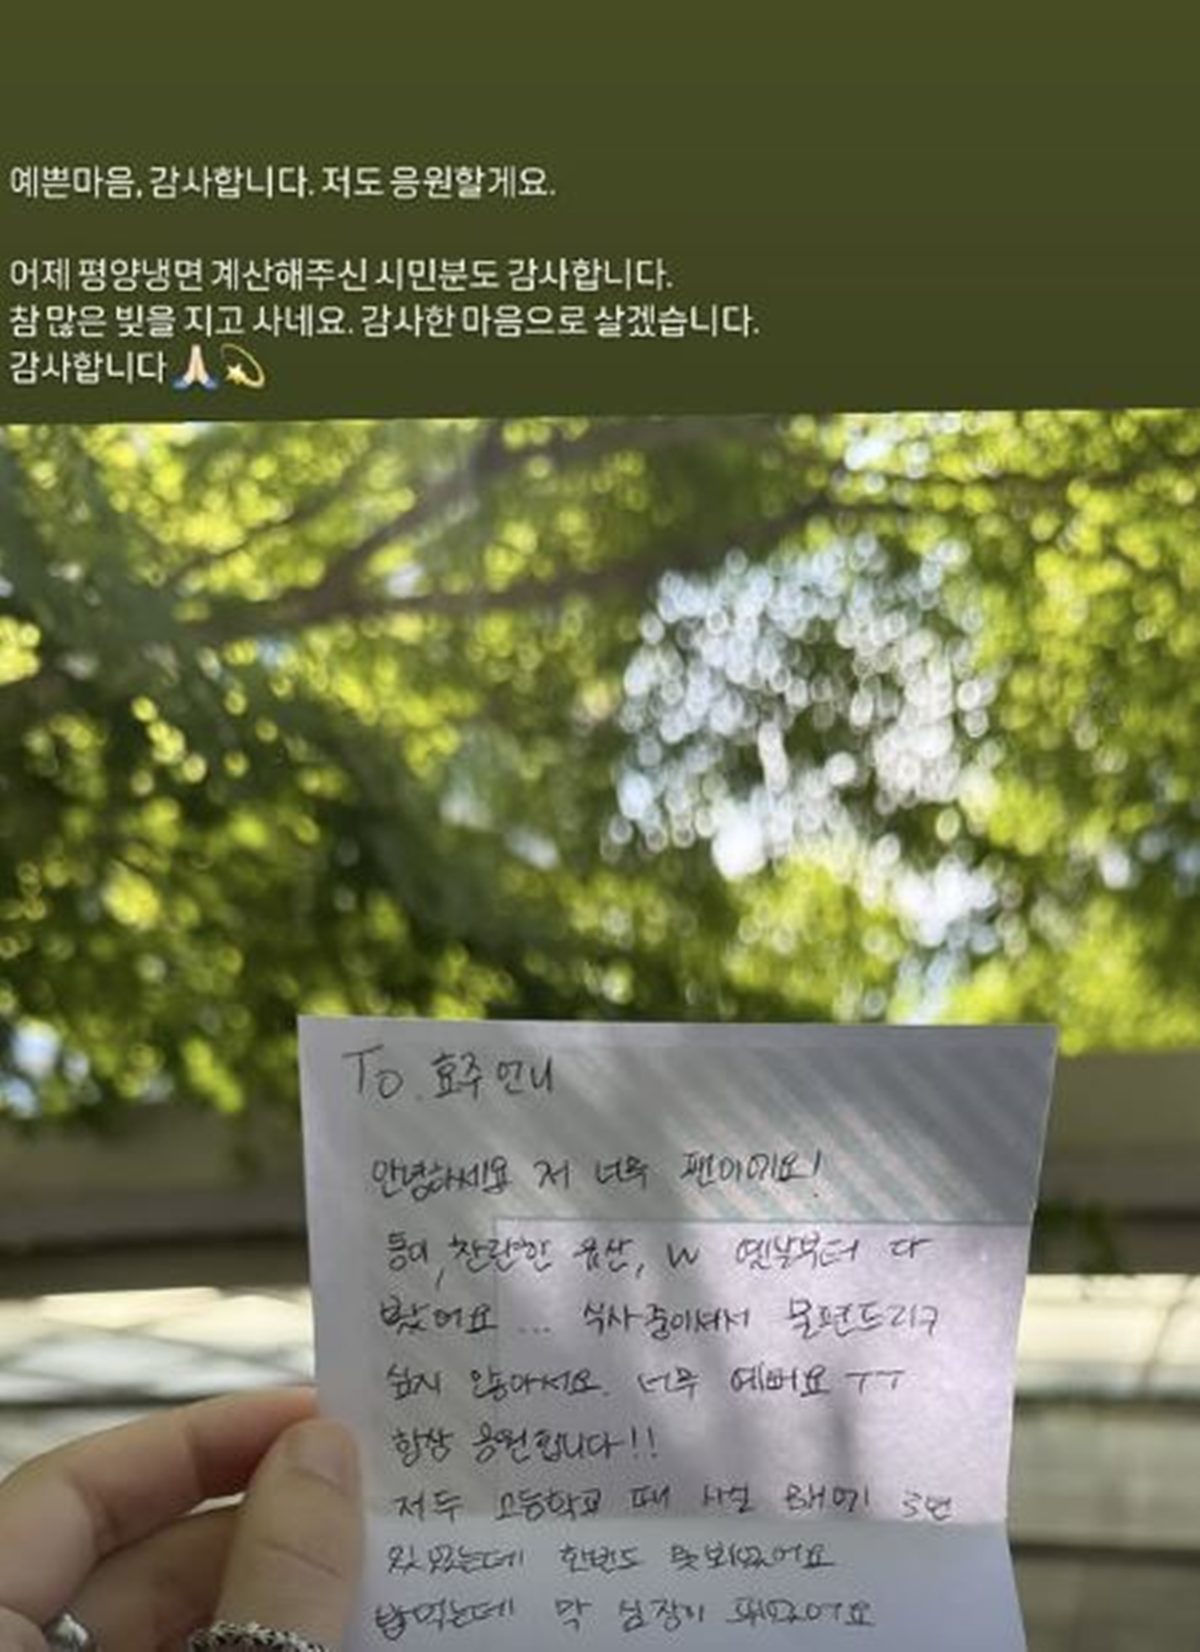 예쁜마음, 감사합니다. 저도 응원할게요.
어제 평양냉면 계산해주신 시민분도 감사합니다.
참 많은 빚을 지고 사네요. 감사한 마음으로 살겠습니다.
감사합니다🙏🏻💫
To. 효주언니
안녕하세요 저 너무 팬이에요!
동이, 찬란한 유산, W 옛날부터 다
봤어요 ... 식사중이셔서 불편드리구
싶지 않아서요. 너무 예뻐요 ㅜㅜ
항상 응원합니다!!
저두 고등학교 때 사실 3번
있었는데 한번도 못뵈었어요
밥먹는데 막 심장이 뛰었어요